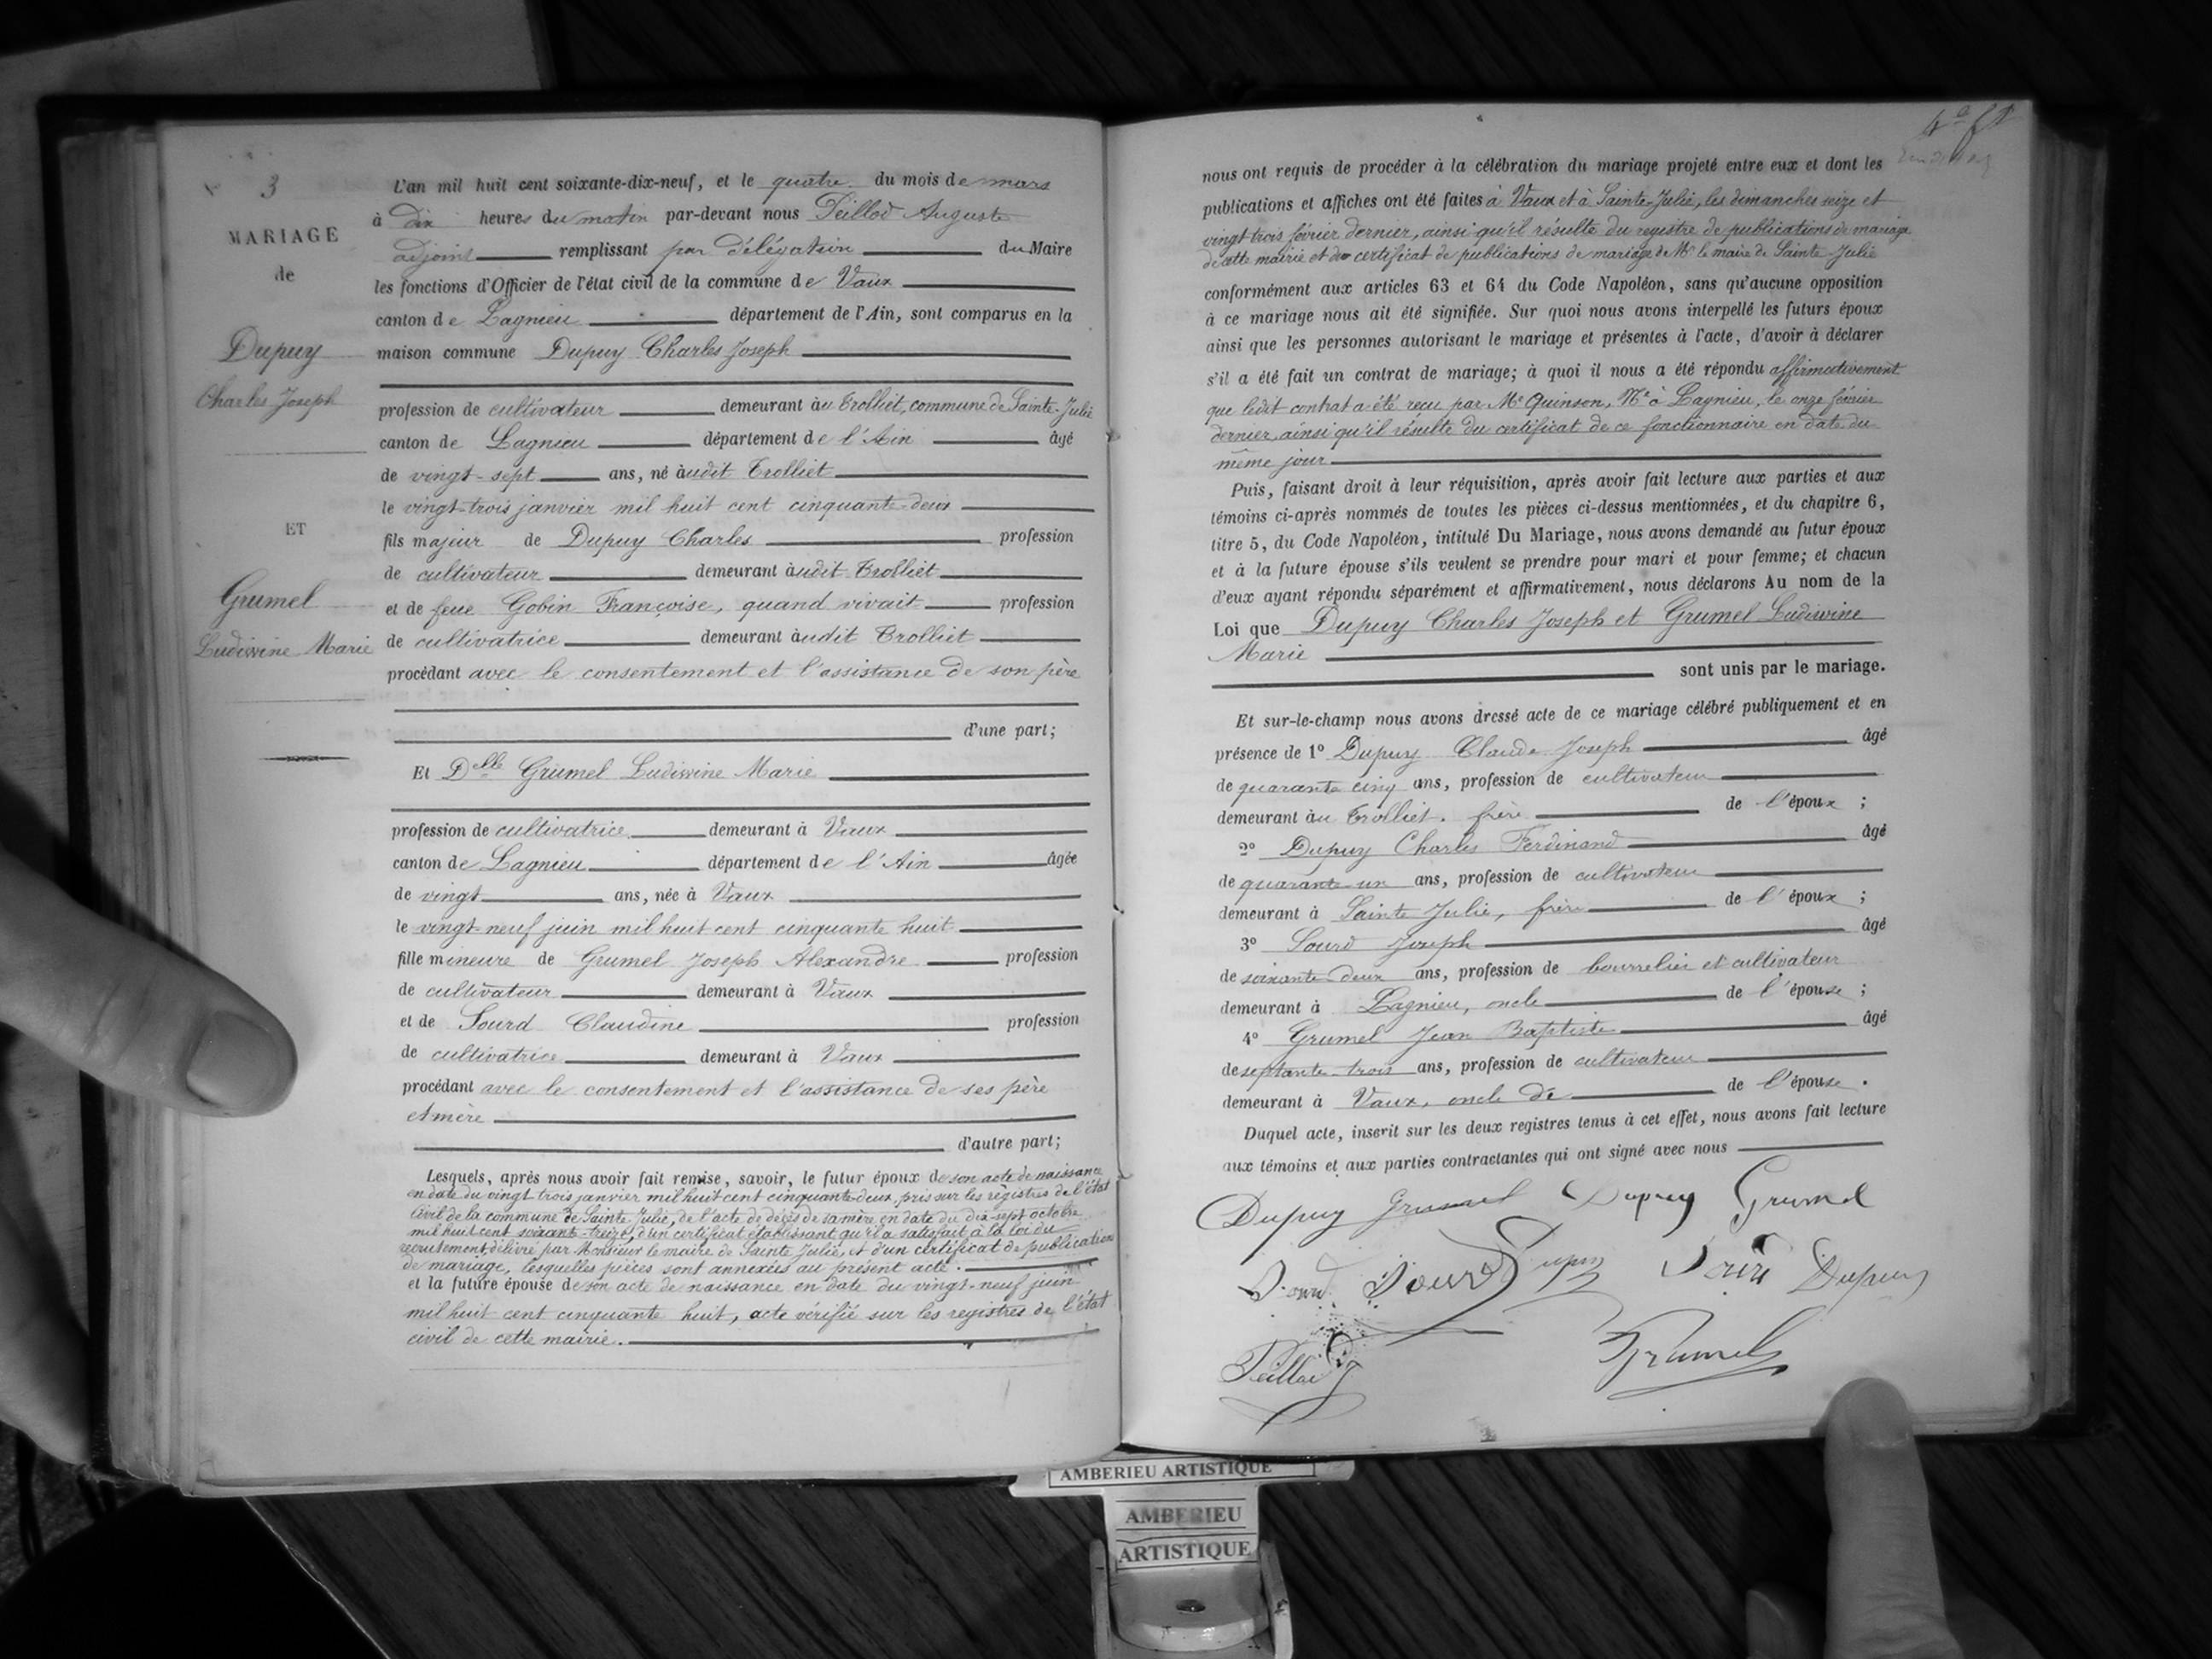 3
MARIAGE
de
Dupuy
Charles Joseph
ET
Grumel
Ludivine Marie
L'an mil huit cent soixante-dix-neuf, et le quatre du mois de mars
à dix heures du matin par-devant nous Peillod Auguste
adjoint remplissant par délégation du Maire
les fonctions d'Officier de l'état civil de la commune de Vaux
canton de Lagnieu département de l'Ain, sont comparus en la
maison commune Dupuy Charles Joseph
profession de cultivateur demeurant au Trolliet, commune de Sainte-Julie
canton de Lagnieu département de l'Ain âgé
de vingt-sept ans, né audit Trolliet
le vingt-trois janvier mil huit cent cinquante-deux
fils majeur de Dupuy Charles profession
de cultivateur demeurant audit Trolliet
et de feue Gobin Françoise, quand vivait profession
de cultivatrice demeurant audit Trolliet
procédant avec le consentement et l'assistance de son père
d'une part;
Et Delle Grumel Ludivine Marie
profession de cultivatrice demeurant à Vaux
canton de Lagnieu département de l'Ain âgée
de vingt ans, née à Vaux
le vingt-neuf juin mil huit cent cinquante huit
fille mineure de Grumel Joseph Alexandre profession
de cultivateur demeurant à Vaux
et de Sourd Claudine profession
de cultivatrice demeurant à Vaux
procédant avec le consentement et l'assistance de ses père
et mère
d'autre part;
Lesquels, après nous avoir fait remise, savoir, le futur époux de son acte de naissance
en date du vingt-trois janvier mil huit cent cinquante-deux, pris sur les registres de l'état
civil de la commune de Sainte Julie, de l'acte de décès de sa mère en date du dix-sept octobre
mil huit cent soixante-treize, d'un certificat établissant qu'il a satisfait à la loi du
recrutement, délivré par Monsieur le maire de Sainte Julie, et d'un certificat de publication
de mariage, lesquelles pièces sont annexées au présent acte.
et la future épouse de son acte de naissance en date du vingt-neuf juin
mil huit cent cinquante huit, acte vérifié sur les registres de l'état
civil de cette mairie.
nous ont requis de procéder à la célébration du mariage projeté entre eux et dont les
publications et affiches ont été faites à Vaux et à Sainte-Julie, les dimanches seize et
vingt-trois février dernier, ainsi qu'il résulte du registre de publications de mariage
de cette mairie et du certificat de publications de mariage de Mr le maire de Sainte-Julie
conformément aux articles 63 et 64 du Code Napoléon, sans qu'aucune opposition
à ce mariage nous ait été signifiée. Sur quoi nous avons interpellé les futurs époux
ainsi que les personnes autorisant le mariage et présentes à l'acte, d'avoir à déclarer
s'il a été fait un contrat de mariage; à quoi il nous a été répondu affirmativement
que ledit contrat a été reçu par Me Quinson, Nre à Lagnieu, le onze février
dernier ainsi qu'il résulte du certificat de ce fonctionnaire en date du
même jour
Puis, faisant droit à leur réquisition, après avoir fait lecture aux parties et aux
témoins ci-après nommés de toutes les pièces ci-dessus mentionnées, et du chapitre 6,
titre 5, du Code Napoléon, intitulé Du Mariage, nous avons demandé au futur époux
et à la future épouse s'ils veulent se prendre pour mari et pour femme; et chacun
d'eux ayant répondu séparément et affirmativement, nous déclarons Au nom de la
Loi que Dupuy Charles Joseph et Grumel Ludivine
Marie
sont unis par le mariage.
Et sur-le-champ nous avons dressé acte de ce mariage célébré publiquement et en
présence de 1º Dupuy Claude Joseph âgé
de quarante cinq ans, profession de cultivateur
demeurant au Trolliet. frère de l'époux ;
2º Dupuy Charles Ferdinand âgé
de quarante un ans, profession de cultivateur
demeurant à Sainte Julie, frère de l'époux ;
3º Sourd Joseph âgé
de soixante-deux ans, profession de bourrelier et cultivateur
demeurant à Lagnieu, oncle de l'épouse ;
4º Grumel Jean Baptiste âgé
de septante-trois ans, profession de cultivateur
demeurant à Vaux, oncle de de l'épouse.
Duquel acte, inscrit sur les deux registres tenus à cet effet, nous avons fait lecture
aux témoins et aux parties contractantes qui ont signé avec nous
Dupuy Grumel Dupuy Grumel
Sourd Sourd Dupuy Dupuy
Peillod Grumel
AMBERIEU ARTISTIQUE
AMBERIEU
ARTISTIQUE